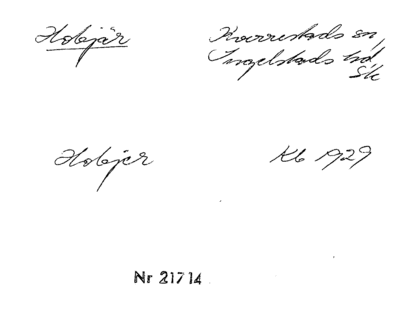 Hobjär
Kverrestads sn,
Ingelstads hd,
Sk
Hobjer
Kb 1929
Nr 21714